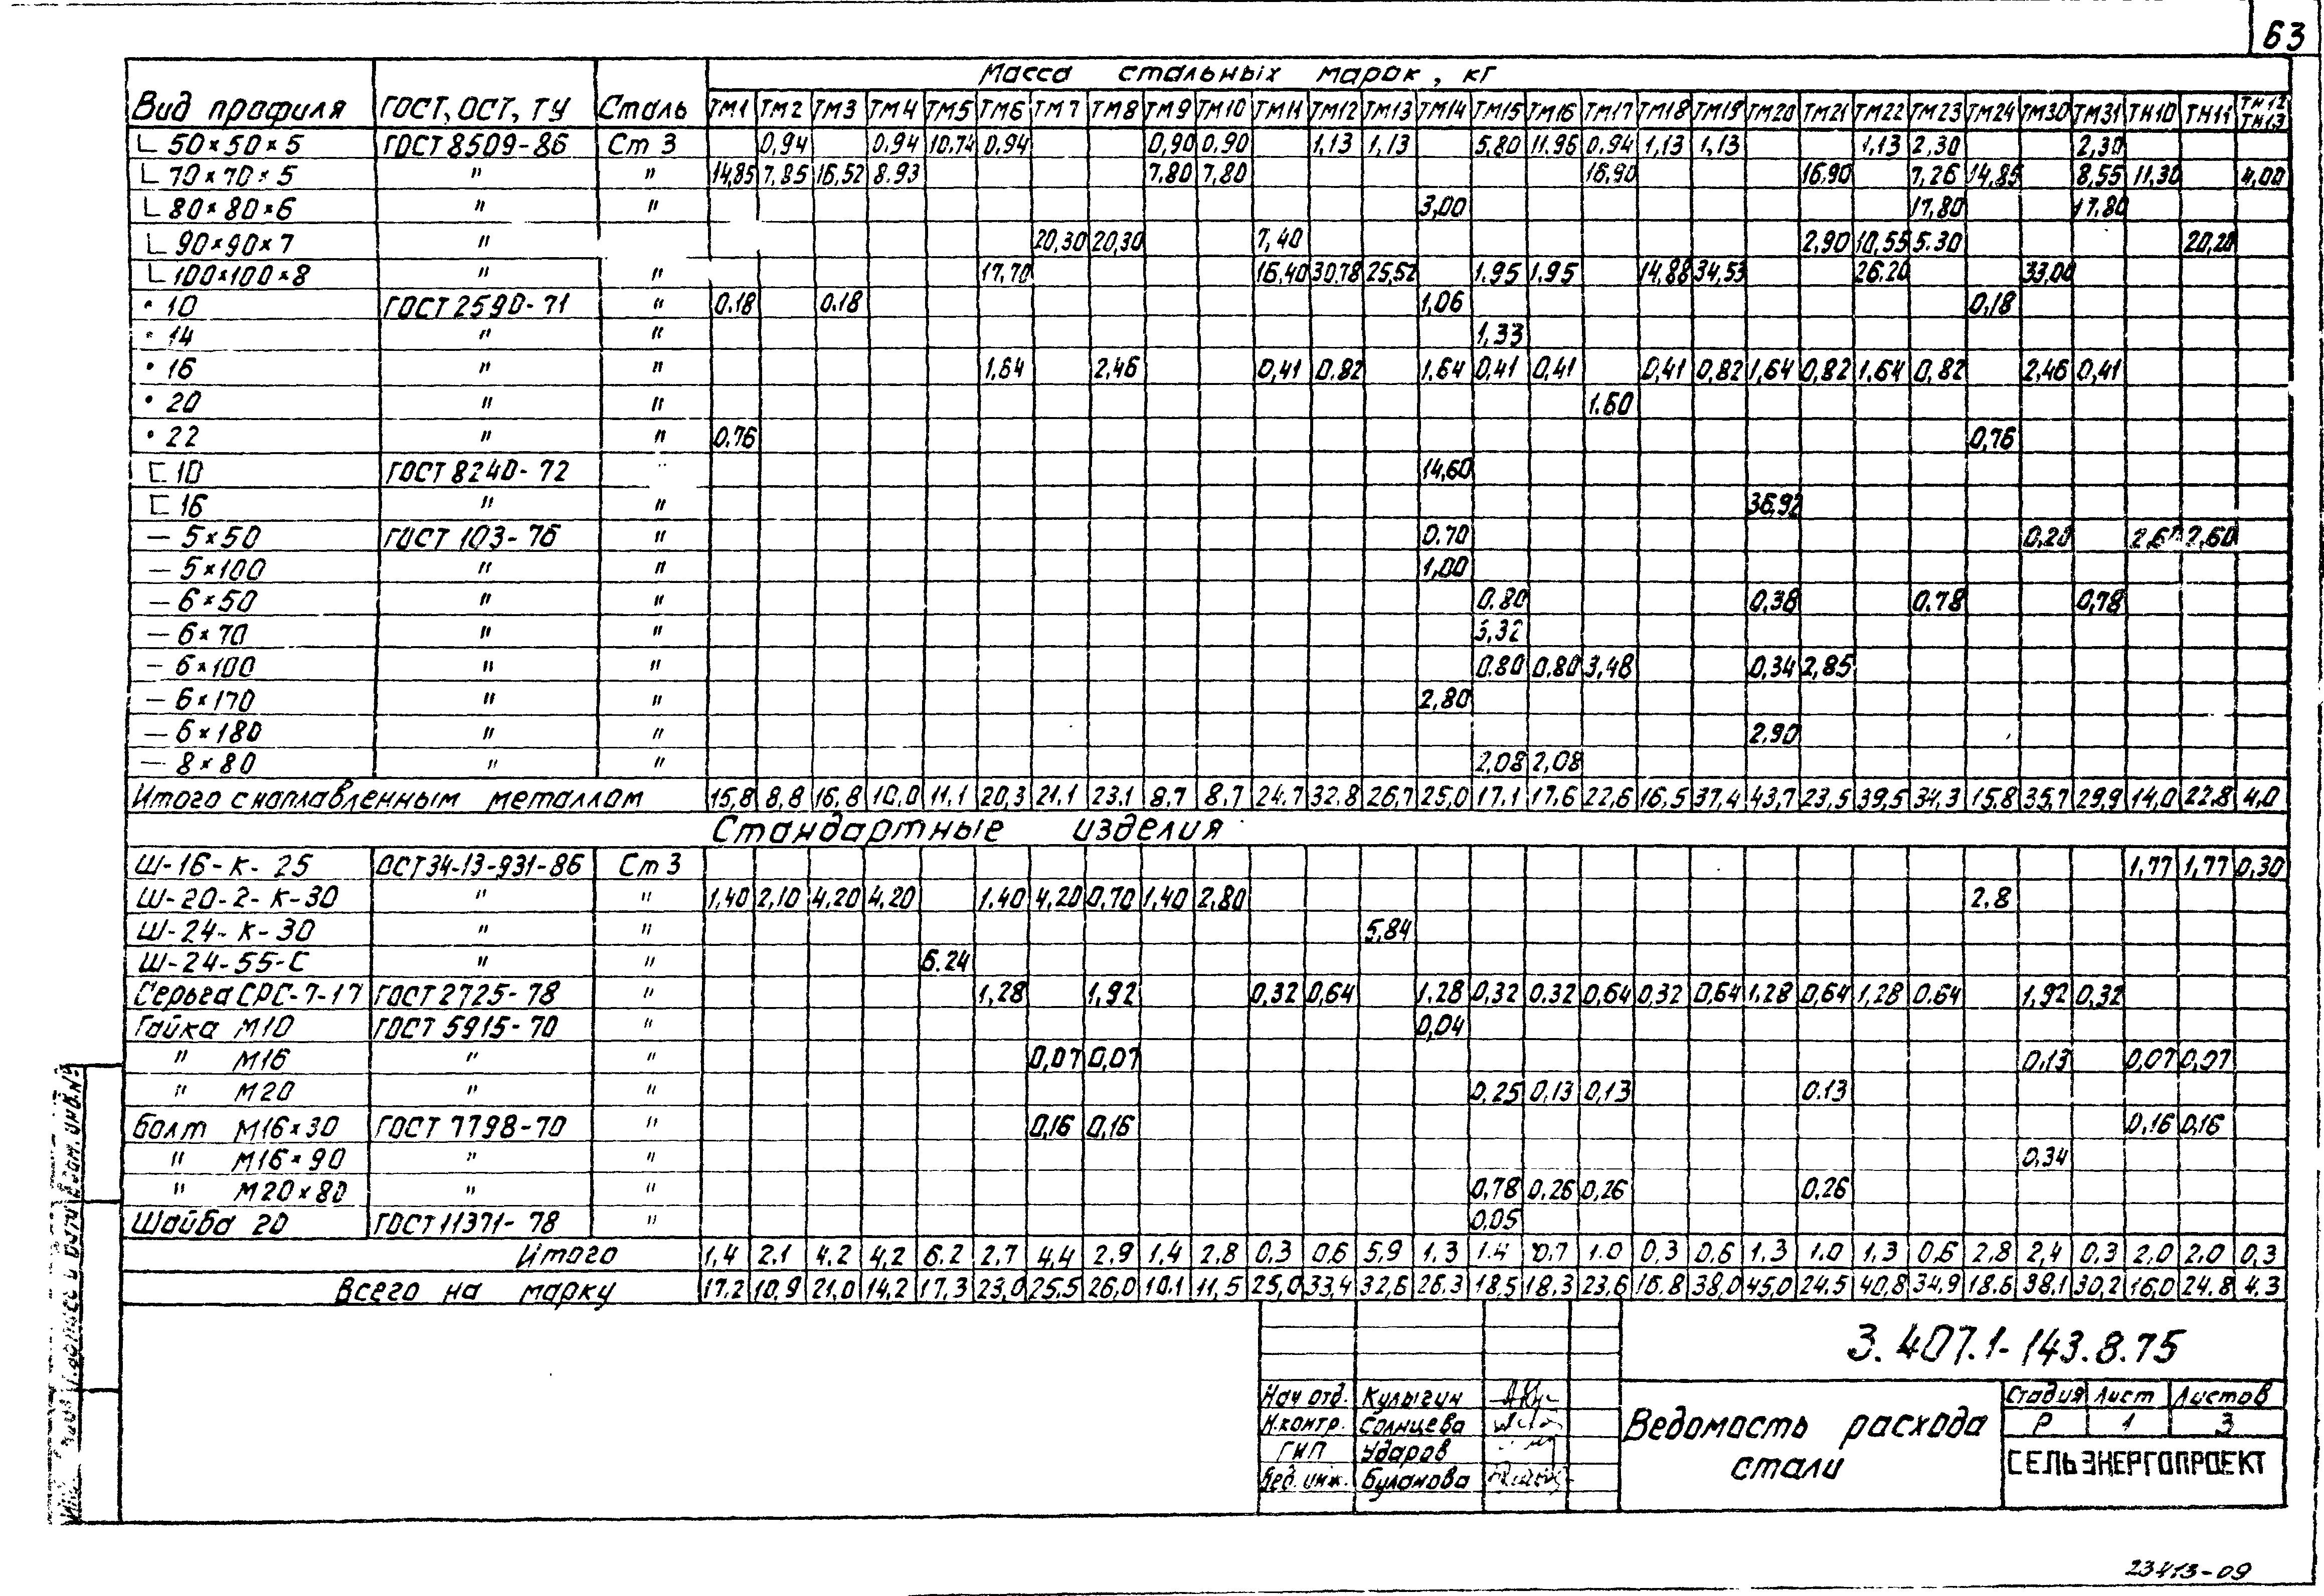 63
Масса стальных марок, кг
Вид профиля ГОСТ, ОСТ, ТУ Сталь ТМ1 ТМ2 ТМ3 ТМ4 ТМ5 ТМ6 ТМ7 ТМ8 ТМ9 ТМ10 ТМ11 ТМ12 ТМ13 ТМ14 ТМ15 ТМ16 ТМ17 ТМ18 ТМ19 ТМ20 ТМ21 ТМ22 ТМ23 ТМ24 ТМ30 ТМ31 ТН10 ТН11 ТН12 ТН13
∟ 50×50×5 ГОСТ 8509-86 Ст 3 0,94 0.94 10.74 0,94 0,90 0,90 1,13 1,13 5.80 11.96 0,94 1,13 1,13 1,13 2,30 2,30
∟ 70×70×5 " " 14,85 7,85 16,52 8.93 7,80 7,80 16,90 16,90 7,26 14,85 8,55 11,30 4,00
∟ 80×80×6 " " 3,00 17,80 17,80
∟ 90×90×7 " 20,30 20,30 7,40 2,90 10,55 5.30 20,20
∟ 100×100×8 " " 17,70 16,40 30.78 25,52 1.95 1.95 14,88 34,53 26.20 33,00
• 10 ГОСТ 2590-71 " 0.18 0.18 1,06 0,18
• 14 " " 1,33
• 16 " " 1,64 2,46 0,41 0.82 1,64 0,41 0,41 0,41 0,82 1,64 0,82 1,64 0,82 2,46 0,41
• 20 " " 1.60
• 22 " " 0.76 0,76
⊏ 10 ГОСТ 8240-72 14,60
⊏ 16 " " 36,92
— 5×50 ГОСТ 103-76 " 0.70 0,20 2,60 2,60
— 5×100 " " 1,00
— 6×50 " " 0.80 0,38 0.78 0,78
— 6×70 " " 3,32
— 6×100 " " 0.80 0,80 3,48 0,34 2,85
— 6×170 " " 2,80
— 6×180 " " 2.90
— 8×80 " " 2,08 2,08
Итого с наплавленным металлом 15,8 8,8 16,8 10,0 11,1 20,3 21,1 23.1 8.7 8,7 24.7 32.8 26,7 25,0 17.1 17,6 22,6 16.5 37,4 43,7 23,5 39,5 34,3 15.8 35,7 29,9 14,0 22,8 4,0
Стандартные изделия
Ш-16-К-25 ОСТ34-13-931-86 Ст 3 1,77 1,77 0,30
Ш-20-2-К-30 " " 1,40 2,10 4,20 4,20 1.40 4,20 0,70 1,40 2,80 2,8
Ш-24-К-30 " " 5,84
Ш-24-55-С " " 6.24
Серьга СРС-7-17 ГОСТ 2725-78 " 1,28 1,92 0,32 0,64 1.28 0,32 0,32 0,64 0,32 0,64 1,28 0,64 1,28 0.64 1,92 0,32
Гайка М10 ГОСТ 5915-70 " 0,04
" М16 " " 0,07 0,07 0,13 0,07 0,07
" М20 " " 0,25 0,13 0,13 0.13
Болт М16×30 ГОСТ 7798-70 " 0,16 0,16 0,16 0,16
" М16×90 " " 0,34
" М20×80 " " 0,78 0,26 0,26 0,26
Шайба 20 ГОСТ 11371-78 " 0,05
Итого 1,4 2,1 4,2 4,2 6.2 2,7 4,4 2,9 1,4 2,8 0,3 0,6 5,9 1,3 1.4 0,7 1.0 0,3 0,6 1.3 1.0 1,3 0,6 2,8 2,4 0,3 2,0 2.0 0,3
Всего на марку 17.2 10,9 21,0 14,2 17,3 23,0 25,5 26,0 10.1 11,5 25,0 33,4 32,6 26.3 18,5 18,3 23,6 16.8 38,0 45,0 24,5 40,8 34,9 18.6 38,1 30,2 16,0 24.8 4.3
3.407.1-143.8.75
Нач отд. Кулыгин
Н.контр. Солнцева
ГИП Ударов
Вед. инж. Буланова
Ведомость расхода
стали
Стадия Лист Листов
Р 1 3
СЕЛЬЭНЕРГОПРОЕКТ
Взам. инв.№
23413-09